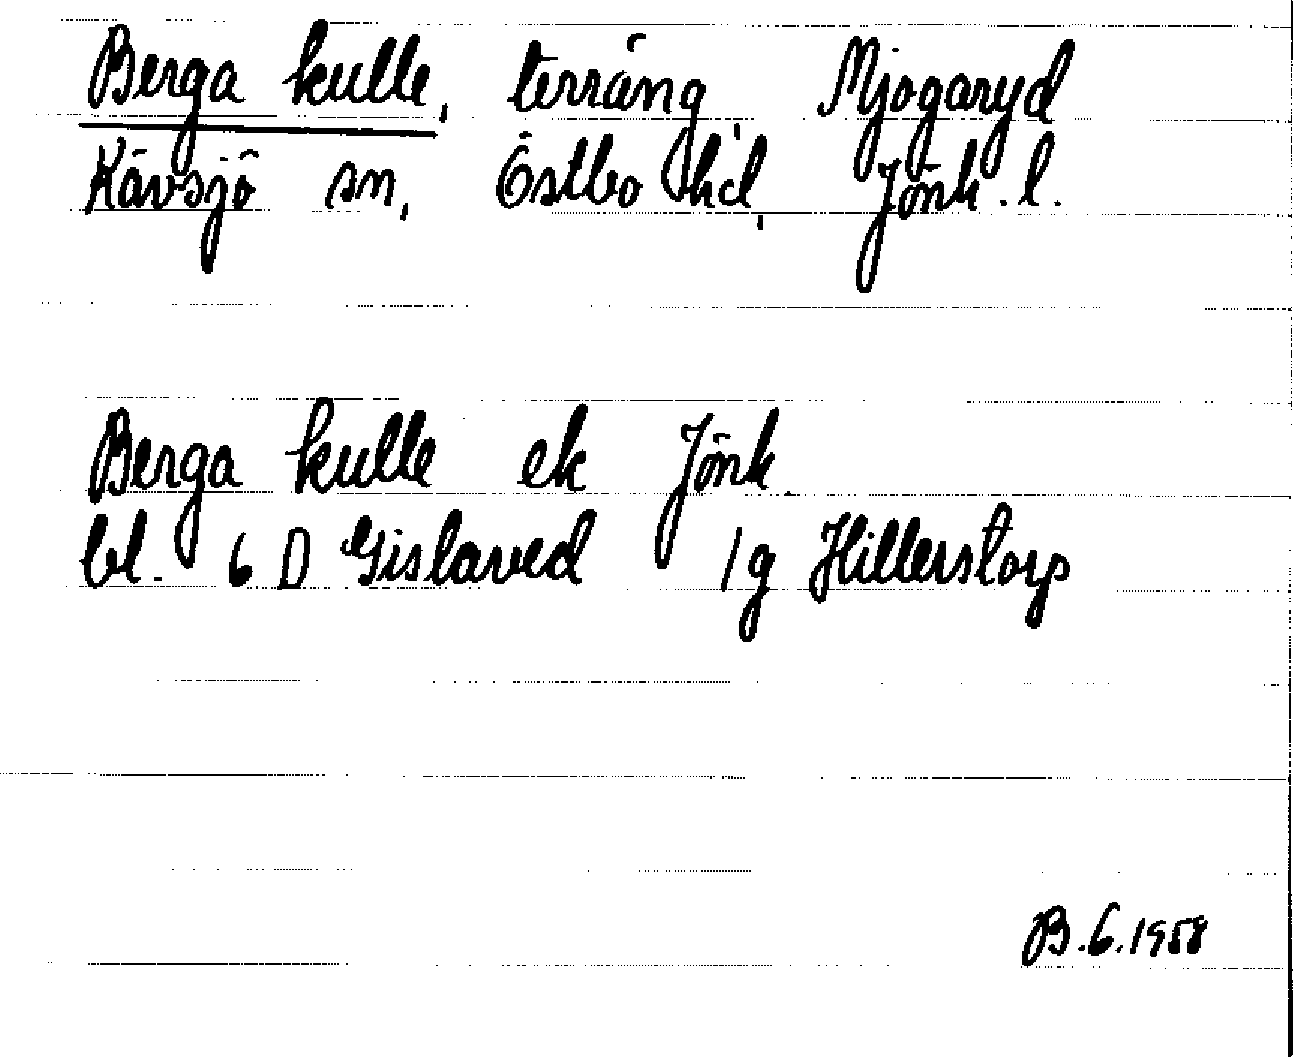 Berga kulle, terräng Mjogaryd
Kävsjö sn, Östbo hd, Jönk. l.
Berga kulle ek Jönk.
bl. 6 D Gislaved 1g Hillerstorp
B.G.1958